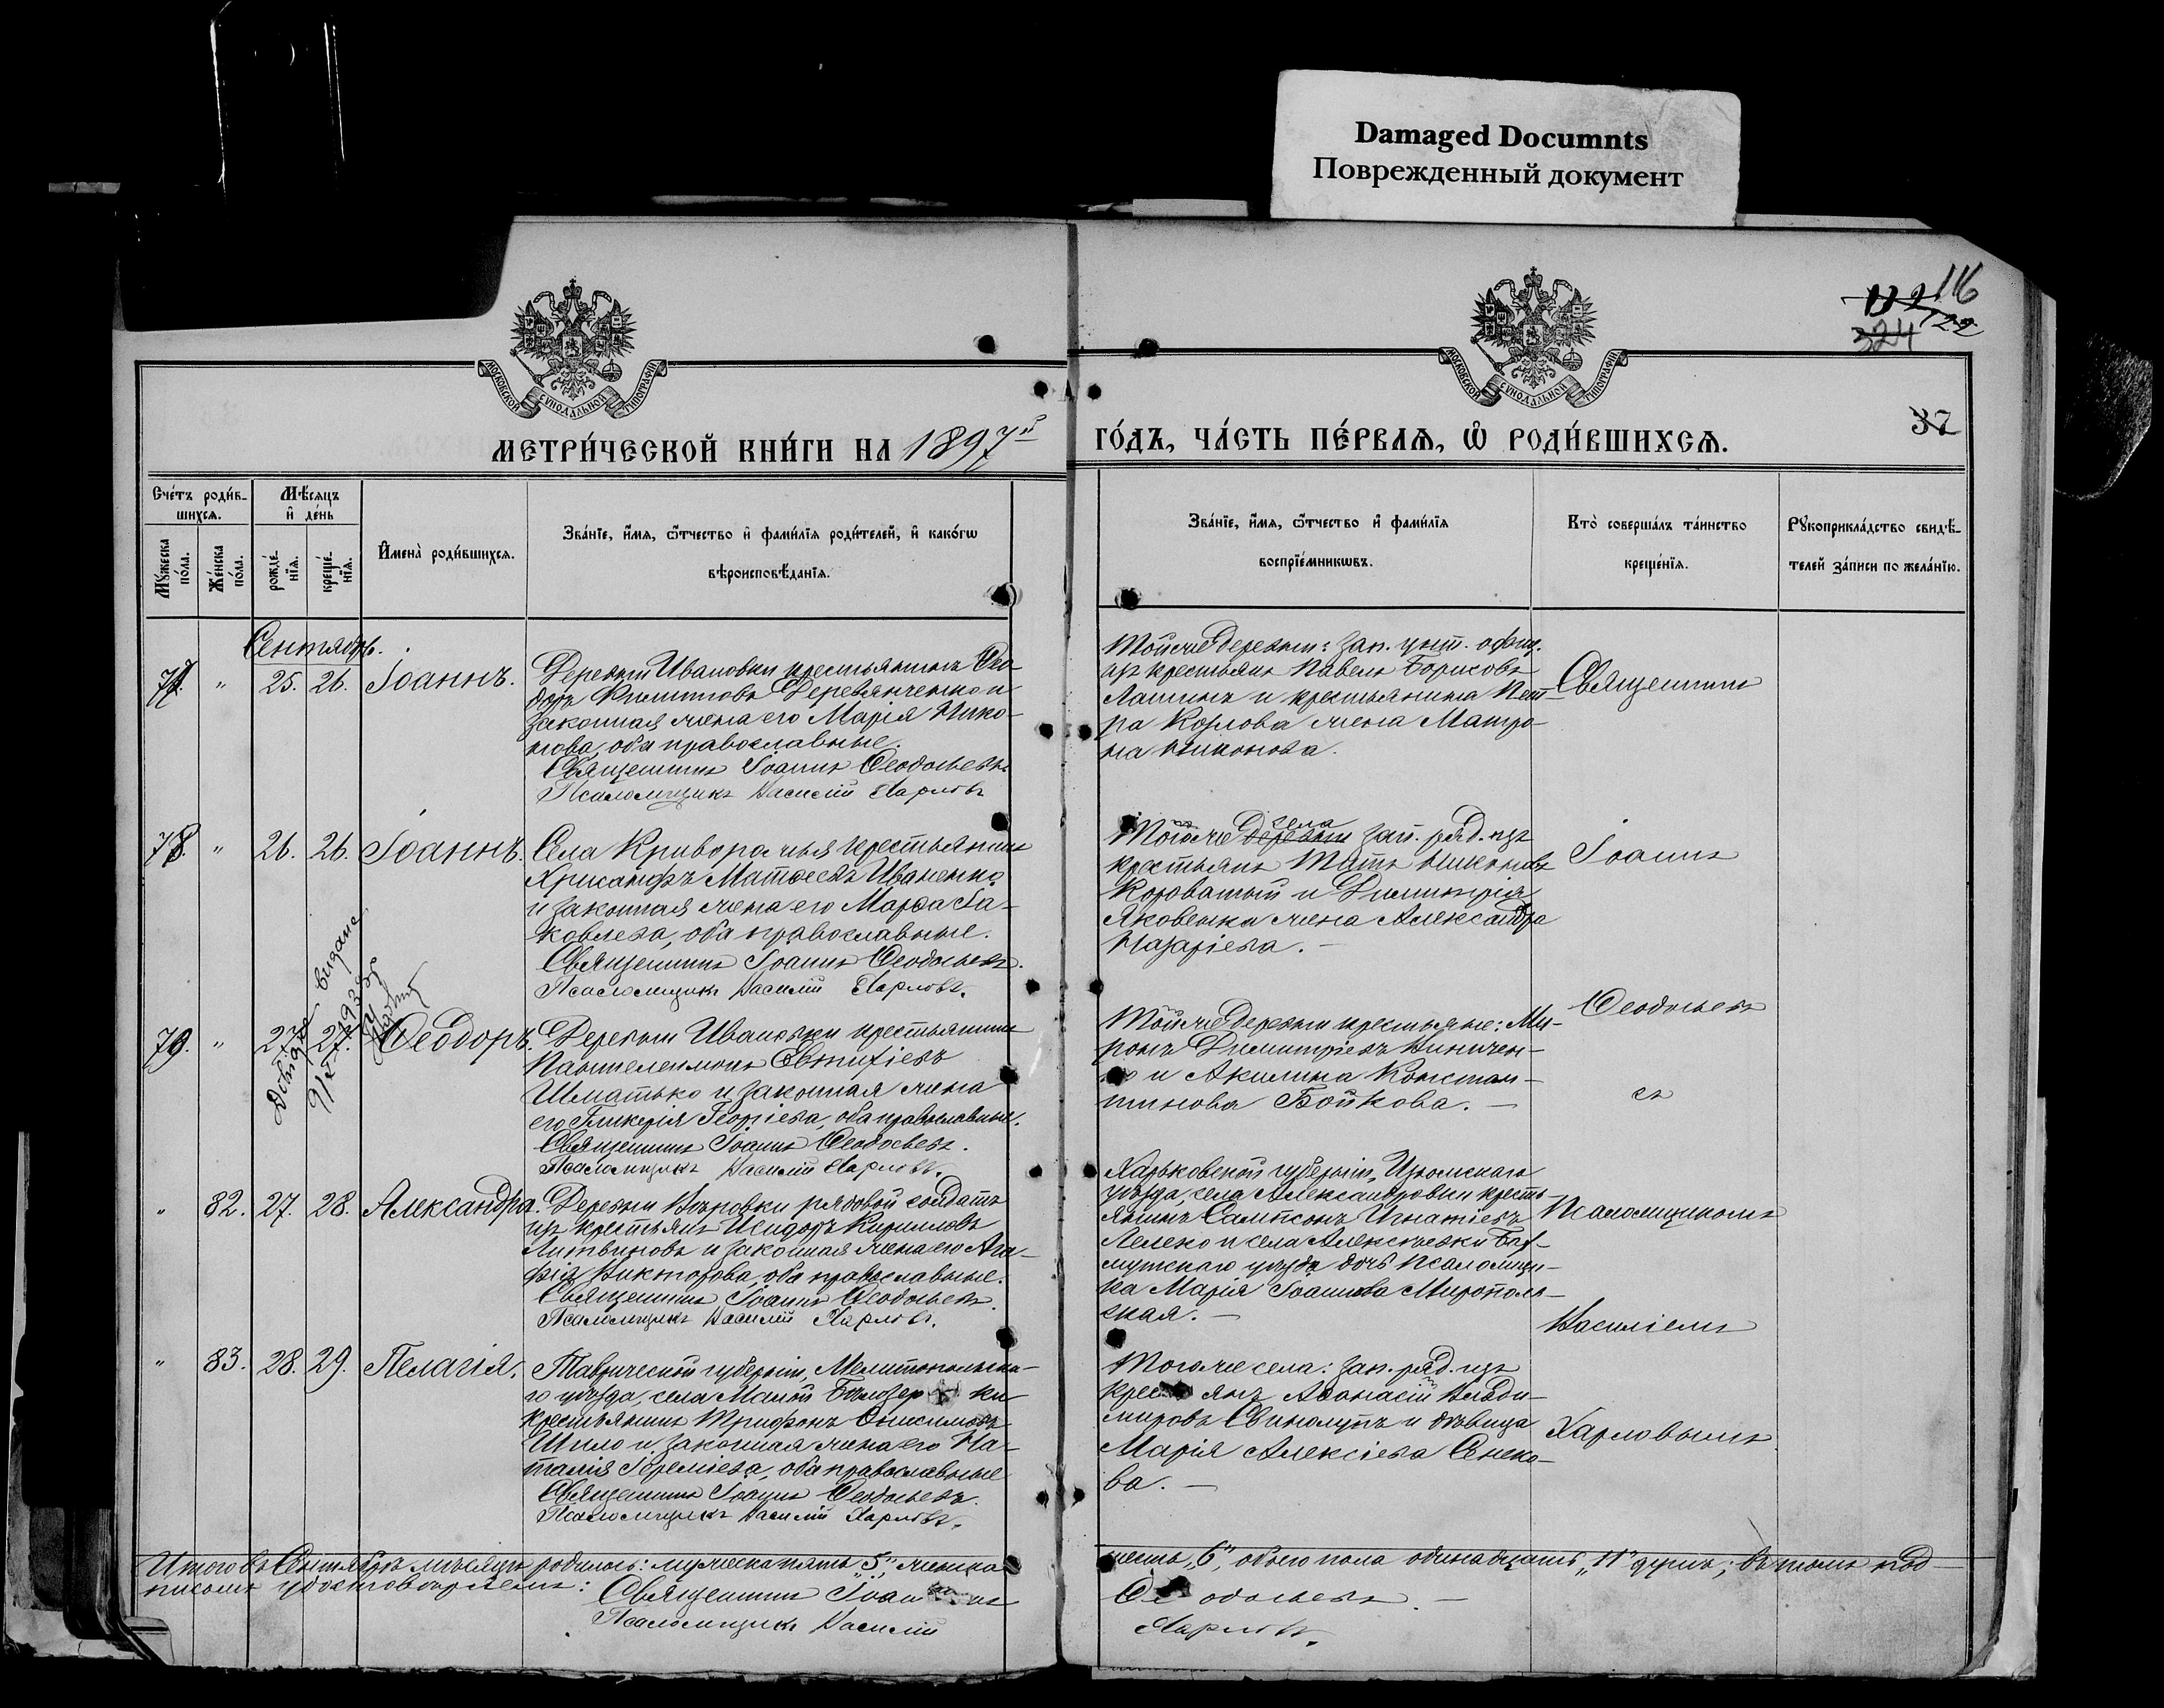 Damaged Documnts
Поврежденный документ
116
324
37
МОСКОВСКОЙ СУНОДАЛЬНОЙ ТИПОГРАФІИ
МОСКОВСКОЙ СУНОДАЛЬНОЙ ТИПОГРАФІИ
МЕТРИ́ЧЕСКОЙ КНИ́ГИ НА 1897й
ГО́ДЪ, ЧА́СТЬ ПЕ́РВАѦ, Ѡ РОДИ́ВШИХСѦ.
Сче́тъ роди́в-
шихсѧ.
Мѣ́сѧцъ
и де́нь
Мꙋ́жеска
по́ла.
Же́нска
по́ла.
рожде́-
нїѧ.
креще́-
нїѧ.
Имена̀ роди́вшихсѧ.
Зва́нїе, и́мѧ, ѿтчество и фами́лїѧ роди́телей, и како́гѡ
вѣроисповѣ́данїѧ.
Зва́нїе, и́мѧ, ѿтчество и фами́лїѧ
воспрїе́мникѡвъ.
Кто̀ соверша́лъ та́инство
креще́нїѧ.
Рꙋкоприкла́дство свидѣ́-
телей за́писи по жела́нїю.
Сентябрь.
77. " 25. 26. Іоаннъ.
Деревни Ивановки крестьянинъ Ѳео-
доръ Филипповъ Деревянченко и
законная жена его Марія Нико-
нова, оба православные.
Священникъ Іоаннъ Ѳеодосьевъ.
Псаломщикъ Василій Харловъ
Той же деревни: зап. унт. офиц.
изъ крестьянъ Павелъ Борисовъ
Лашинъ и крестьянина Пет-
ра Козлова жена Матро-
на Никонова.
Священникъ
78. " 26. 26. Іоаннъ.
Села Криворожья крестьянинъ
Хрисанфъ Матѳеевъ Иваненко
и законная жена его Марѳа Іа-
ковлева, оба православные.
Священникъ Іоаннъ Ѳеодосьевъ.
Псаломщикъ Василій Харловъ.
Того же деревни села зап. ряд. изъ
крестьянъ Титъ Никоновъ
Короватый и Димитрія
Яковенка жена Александра
Назаріева. —
Іоаннъ
79. " 27. 27. Ѳеодоръ.
Деревни Ивановки крестьянинъ
Пантелеимонъ Евтихіевъ
Шматько и законная жена
его Гликерія Георгіева, оба православные.
Священникъ Іоаннъ Ѳеодосьевъ.
Псаломщикъ Василій Харловъ.
Той же деревни крестьяне: Ми-
ронъ Димитріевъ Виничен-
ко и Акилина Констан-
тинова Бойкова. —
Ѳеодосьевъ
съ
" 82. 27. 28. Александра.
Деревни Вѣровки рядовой солдатъ
изъ крестьянъ Исидоръ Кирилловъ
Литвиновъ и законная жена его Ага-
фія Викторова, оба православные.
Священникъ Іоаннъ Ѳеодосьевъ.
Псаломщикъ Василій Харловъ.
Харьковской губерніи, Изюмскаго
уѣзда, села Александровки кресть-
янинъ Сампсонъ Игнатіевъ
Лелеко и села Алексѣевки Бах-
мутскаго уѣзда дочь псаломщи-
ка Марія Іоаннова Мирополь-
ская. —
Псаломщикомъ
Василіемъ
" 83. 28. 29. Пелагія.
Таврической губерніи, Мелитопольска-
го уѣзда, села Малой Бѣлозерки
крестьянинъ Трифонъ Онисимовъ
Шило и законная жена его На-
талія Іереміева, оба православные
Священникъ Іоаннъ Ѳеодосьевъ.
Псаломщикъ Василій Харловъ.
Того же села: зап. ряд. изъ
крестьянъ Аѳанасій Влади-
мировъ Свинолупъ и дѣвица
Марія Алексіева Сенеко-
ва. —
Харловымъ
Итого въ Сентябрѣ мѣсяцѣ родилось: мужеска пять „5", женска
шесть „6", обоего пола одинадцать „11" душъ; въ томъ под-
писомъ удостовѣряемъ: Священникъ Іоаннъ
Ѳеодосьевъ. —
Псаломщикъ Василій
Харловъ.